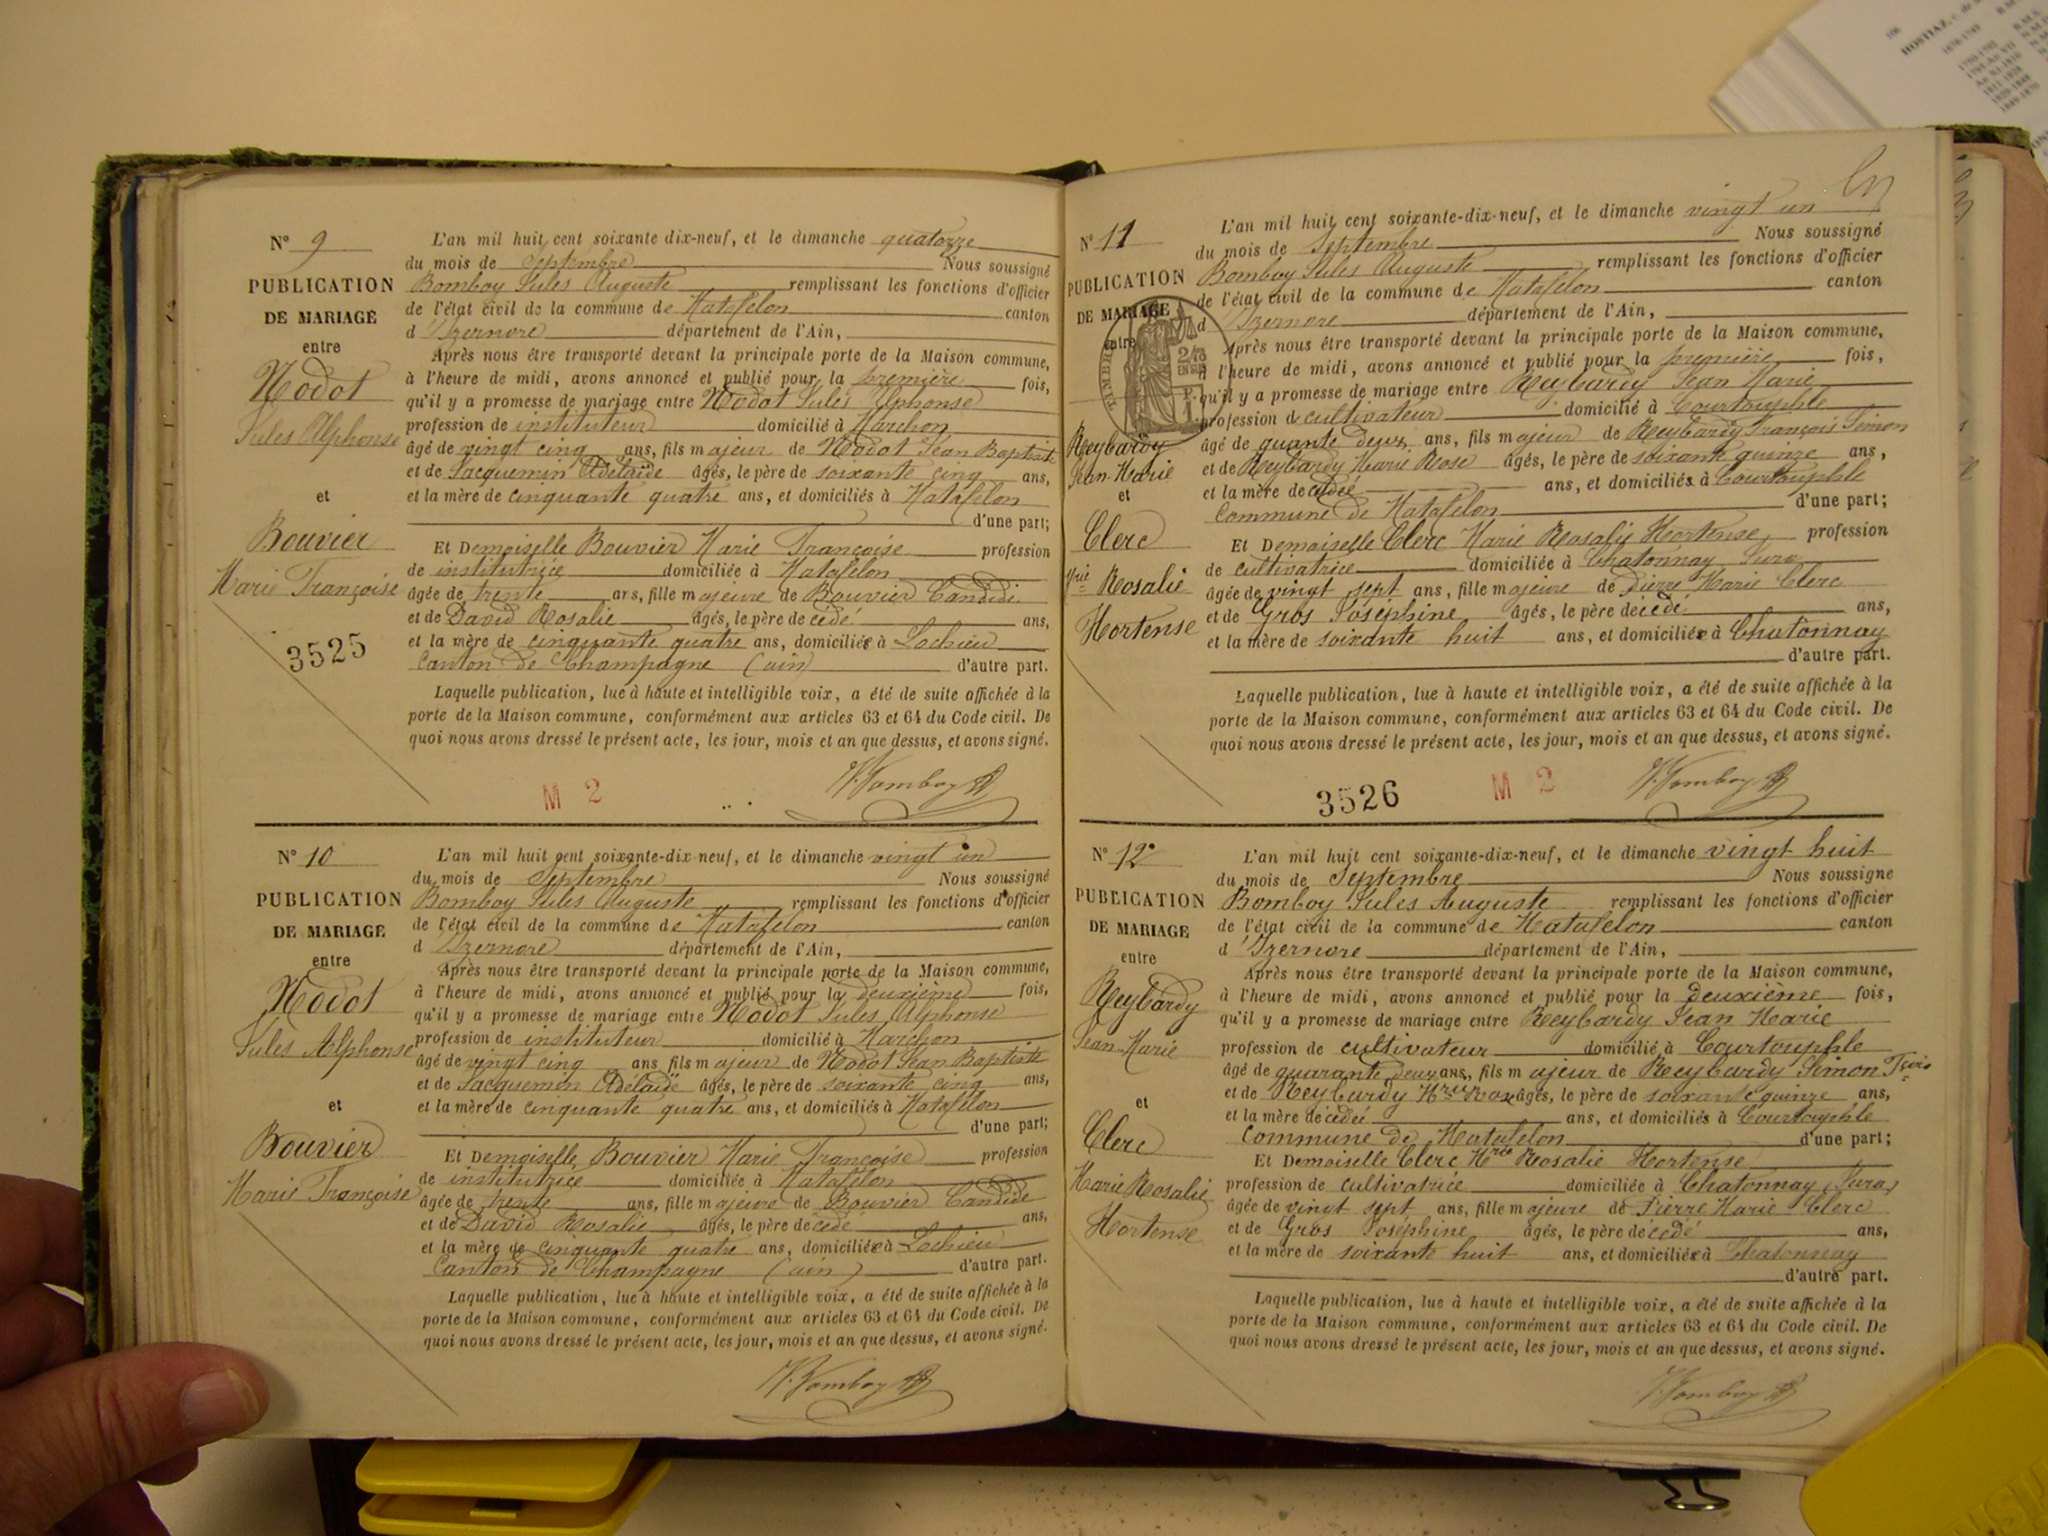 N° 9
PUBLICATION
DE MARIAGE
entre
Nodot
Jules Alphonse
et
Bouvier
Marie Françoise
3525
L'an mil huit cent soixante dix-neuf, et le dimanche quatorze
du mois de Septembre Nous soussigné
Bomboy Jules Auguste remplissant les fonctions d'officier
de l'état civil de la commune de Matafelon canton
d'Izernore département de l'Ain,
Après nous être transporté devant la principale porte de la Maison commune,
à l'heure de midi, avons annoncé et publié pour la première fois,
qu'il y a promesse de mariage entre Nodot Jules Alphonse
profession de instituteur domicilié à Marchon
âgé de vingt cinq ans, fils majeur de Nodot Jean Baptiste
et de Jacquemin Adélaïde âgés, le père de soixante cinq ans,
et la mère de cinquante quatre ans, et domiciliés à Matafelon
d'une part;
Et Demoiselle Bouvier Marie Françoise profession
de institutrice domiciliée à Matafelon
âgée de trente ans, fille majeure de Bouvier Candide
et de David Rosalie âgés, le père décédé ans,
et la mère de cinquante quatre ans, domiciliée à Lochieu
Canton de Champagne (ain) d'autre part.
Laquelle publication, lue à haute et intelligible voix, a été de suite affichée à la
porte de la Maison commune, conformément aux articles 63 et 64 du Code civil. De
quoi nous avons dressé le présent acte, les jour, mois et an que dessus, et avons signé.
M 2
Bomboy
N° 10
PUBLICATION
DE MARIAGE
entre
Nodot
Jules Alphonse
et
Bouvier
Marie Françoise
L'an mil huit cent soixante-dix neuf, et le dimanche vingt un
du mois de Septembre Nous soussigné
Bomboy Jules Auguste remplissant les fonctions d'officier
de l'état civil de la commune de Matafelon canton
d'Izernore département de l'Ain,
Après nous être transporté devant la principale porte de la Maison commune,
à l'heure de midi, avons annoncé et publié pour la deuxième fois,
qu'il y a promesse de mariage entre Nodot Jules Alphonse
profession de instituteur domicilié à Marchon
âgé de vingt cinq ans fils majeur de Nodot Jean Baptiste
et de Jacquemin Adélaïde âgés, le père de soixante cinq ans,
et la mère de cinquante quatre ans, et domiciliés à Matafelon
d'une part;
Et Demoiselle Bouvier Marie Françoise profession
de institutrice domiciliée à Matafelon
âgée de trente ans, fille majeure de Bouvier Candide
et de David Rosalie âgés, le père décédé ans,
et la mère de cinquante quatre ans, domiciliée à Lochieu
Canton de Champagne (ain) d'autre part.
Laquelle publication, lue à haute et intelligible voix, a été de suite affichée à la
porte de la Maison commune, conformément aux articles 63 et 64 du Code civil. De
quoi nous avons dressé le présent acte, les jour, mois et an que dessus, et avons signé.
Bomboy
N° 11
PUBLICATION
DE MARIAGE
entre
Reybardy
Jean Marie
et
Clerc
Mrie Rosalie
Hortense
L'an mil huit cent soixante-dix-neuf, et le dimanche vingt un
du mois de Septembre Nous soussigné
Bomboy Jules Auguste remplissant les fonctions d'officier
de l'état civil de la commune de Matafelon canton
d'Izernore département de l'Ain,
Après nous être transporté devant la principale porte de la Maison commune,
à l'heure de midi, avons annoncé et publié pour la première fois,
qu'il y a promesse de mariage entre Reybardy Jean Marie
profession d cultivateur domicilié à Courtouphle
âgé de quante deux ans, fils majeur de Reybardy François Simon
et de Reybardy Marie Rose âgés, le père de soixante quinze ans,
et la mère décédée ans, et domiciliés à Courtouphle
Commune de Matafelon d'une part;
Et Demoiselle Clerc Marie Rosalie Hortense profession
de cultivatrice domiciliée à Chatonnay Jura
âgée de vingt sept ans, fille majeure de Pierre Marie Clerc
et de Gros Joséphine âgés, le père décédé ans,
et la mère de soixante huit ans, et domiciliée à Chatonnay
d'autre part.
Laquelle publication, lue à haute et intelligible voix, a été de suite affichée à la
porte de la Maison commune, conformément aux articles 63 et 64 du Code civil. De
quoi nous avons dressé le présent acte, les jour, mois et an que dessus, et avons signé.
3526 M 2
Bomboy
N° 12
PUBLICATION
DE MARIAGE
entre
Reybardy
Jean Marie
et
Clerc
Marie Rosalie
Hortense
L'an mil huit cent soixante-dix-neuf, et le dimanche vingt huit
du mois de Septembre Nous soussigné
Bomboy Jules Auguste remplissant les fonctions d'officier
de l'état civil de la commune de Matafelon canton
d'Izernore département de l'Ain,
Après nous être transporté devant la principale porte de la Maison commune,
à l'heure de midi, avons annoncé et publié pour la deuxième fois,
qu'il y a promesse de mariage entre Reybardy Jean Marie
profession de cultivateur domicilié à Courtouphle
âgé de quarante deux ans, fils majeur de Reybardy Simon Fçois
et de Reybardy Mrie Rose âgés, le père de soixante quinze ans,
et la mère décédée ans, et domiciliés à Courtouphle
Commune de Matafelon d'une part;
Et Demoiselle Clerc Mrie Rosalie Hortense
profession de cultivatrice domiciliée à Chatonnay (Jura)
âgée de vingt sept ans, fille majeure de Pierre Marie Clerc
et de Gros Joséphine âgés, le père décédé ans,
et la mère de soixante huit ans, et domiciliée à Chatonnay
d'autre part.
Laquelle publication, lue à haute et intelligible voix, a été de suite affichée à la
porte de la Maison commune, conformément aux articles 63 et 64 du Code civil. De
quoi nous avons dressé le présent acte, les jour, mois et an que dessus, et avons signé.
Bomboy